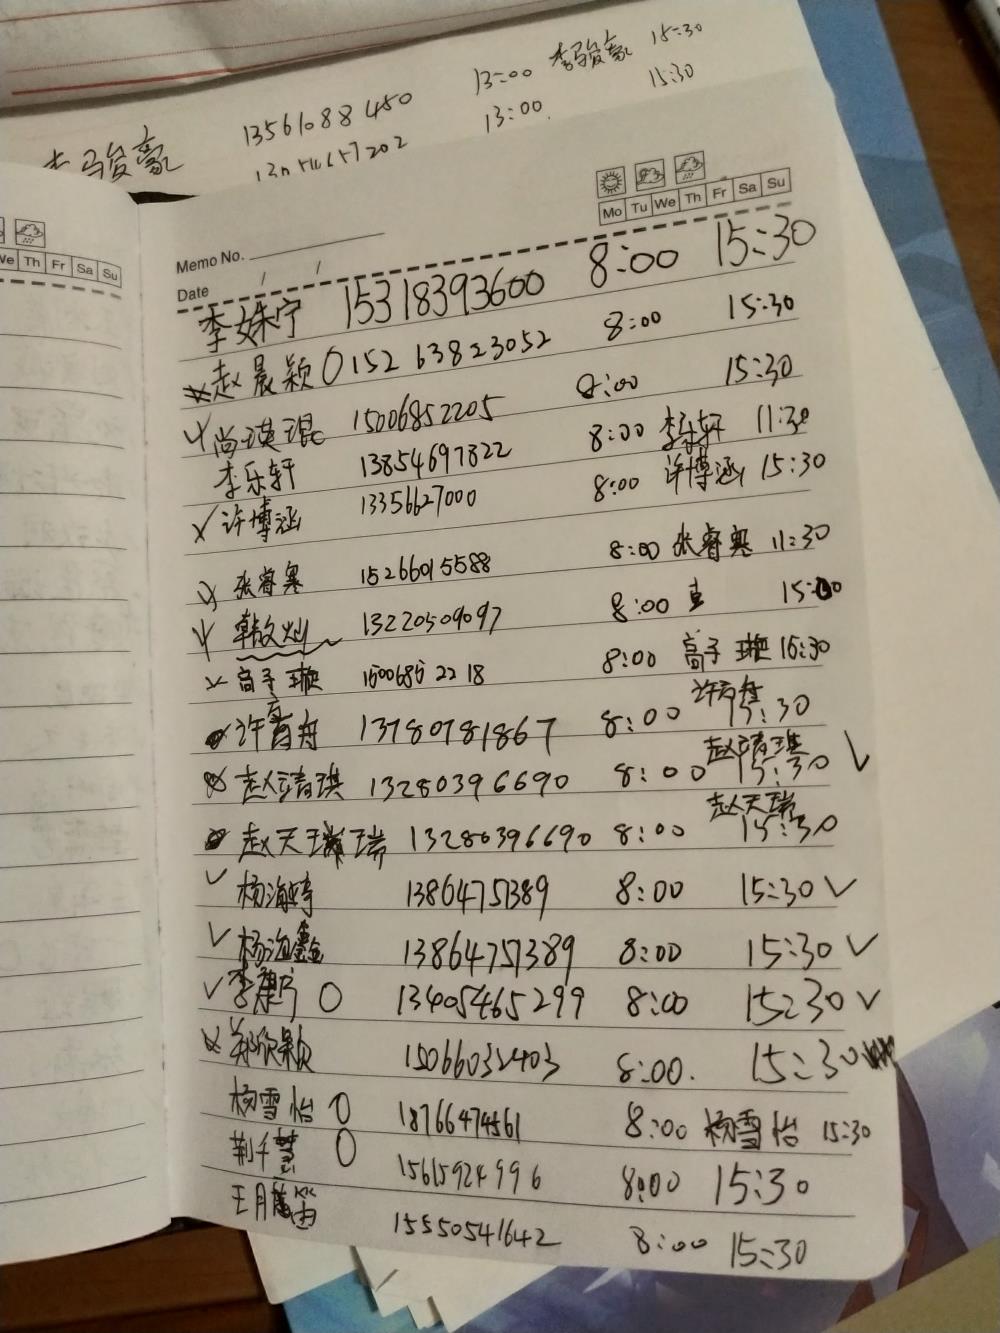 13:00 李骏豪 15:30
李骏豪 13561088450 13:00 15:30
We Th Fr Sa Su
Mo Tu We Th Fr Sa Su
Memo No.
Date / /
李姝宁 15318393600 8:00 15:30
赵晨颖 0 152 63823052 8:00 15:30
尚琪琨 15006852205 8:00 15:30
李乐轩 13854697822 8:00 李乐轩 11:30
许博涵 13356627000 8:00 许博涵 15:30
张睿寒 15266015588 8:00 张睿寒 11:30
韩政灿 13220509097 8:00 15:00
高子璇 1500685 22 18 8:00 高子璇 15:30
许育舟 13780781867 8:00 15:30
赵清琪 13280396690 8:00 赵清琪 15:30 ✓
赵天瑞 13280396690 8:00 赵天瑞 15:30
✓ 杨海 13864751389 8:00 15:30 ✓
✓ 杨海鑫 13864751389 8:00 15:30 ✓
✓ 李 0 13405465299 8:00 15:30 ✓
郑欣颖 15066032403 8:00. 15:30
杨雪怡 0 18766474561 8:00 杨雪怡 15:30
荆千慧 0 15615924996 8:00 15:30
王月笛 15550541642 8:00 15:30